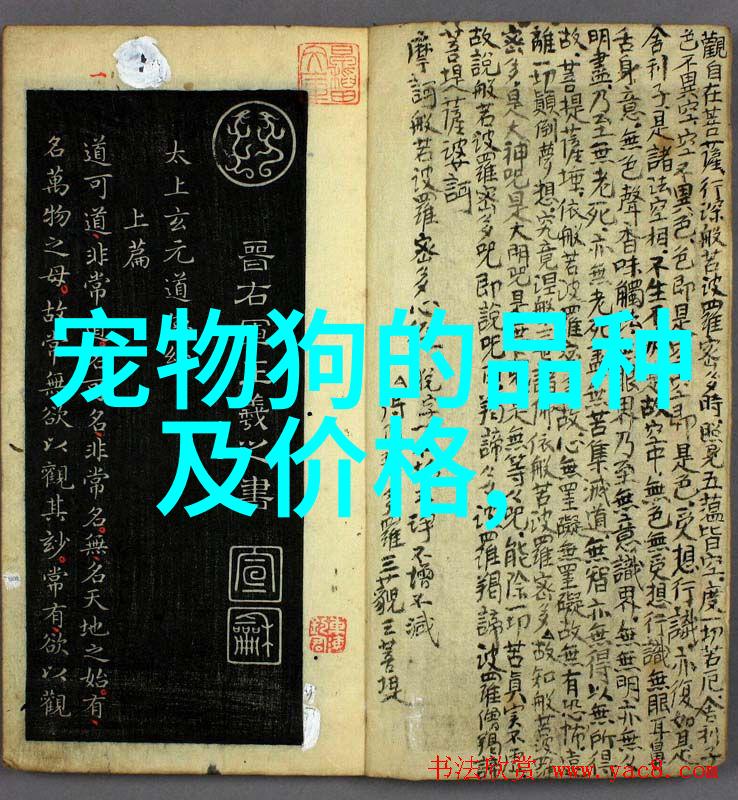 宠物狗的品种
及价格,
太上玄元道
上篇
道可道非常
名非常名無名天地之始有
名萬物之母故常無欲以觀其妙常有欲以觀
晉右
羲之書
宣
龢
觀自在菩薩行深般若波羅蜜多時照見五蘊皆空度一切苦厄舍利子
色不異空空不異色色即是
即是色受想行識亦復如是
舍利子是諸法空相不生不
故空中無色無受想行識無眼耳鼻
舌身意無色聲香味觸法
眼界乃至無意識界無無明亦無
明盡乃至無老死亦無老死盡
苦集滅道無智亦無得以無所得
故菩提薩埵依般若波羅
故心無罣礙無罣礙故無有恐怖遠
離一切顛倒夢想究竟涅槃
依般若波羅蜜多故知般若波羅
密多是大神咒是大明咒是無
無等々咒能除一切苦真實不虛
故說般若波羅密多咒即說咒曰羯諦々
波羅羯諦波羅僧羯諦
菩提薩婆訶
摩訶般若波羅密多心經
不增不減
羅三藐三菩提
书法欣赏 www.yac8.com